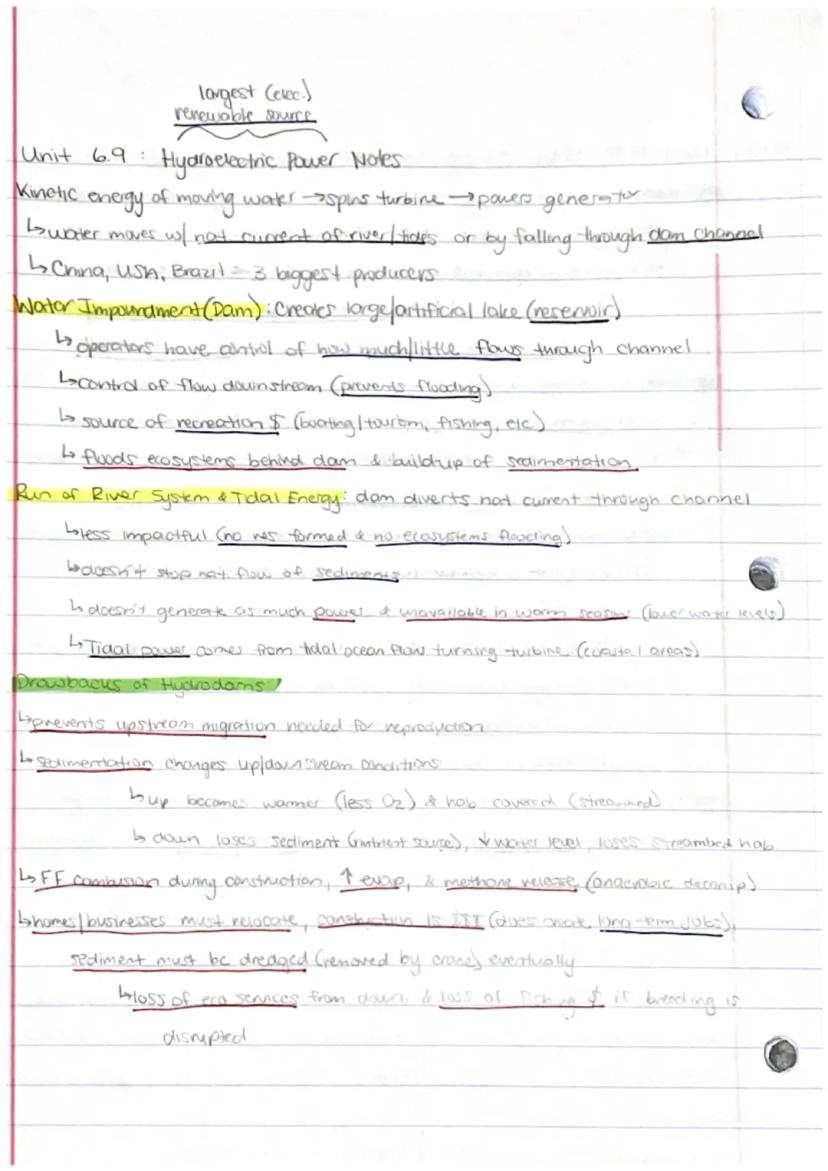 largest (elec.)
renewable source
Unit 6.9 : Hydroelectric Power Notes
Kinetic energy of moving water → spins turbine → powers generator
↳ water moves w/ nat current of river/tides or by falling through dam channel
↳ China, USA, Brazil = 3 biggest producers
Water Impoundment (Dam) : Creates large/artificial lake (reservoir)
↳ operators have control of how much/little flows through channel
↳ control of flow downstream (prevents flooding)
↳ source of recreation $ (boating/tourism, fishing, etc)
↳ floods ecosystems behind dam & buildup of sedimentation
Run of River System & Tidal Energy : dam diverts nat current through channel
↳ less impactful (no res formed & no ecosystems flooding)
↳ doesn't stop nat flow of sediments
↳ doesn't generate as much power & unavailable in warm seasons (lower water levels)
↳ Tidal power comes from tidal ocean flow turning turbine (coastal areas)
Drawbacks of Hydrodams
↳ prevents upstream migration needed for reproduction
↳ sedimentation changes up/downstream conditions
↳ up becomes warmer (less O2) & hab covered (streambed)
↳ down loses sediment (nutrient source), ↓ water level, loses streambed hab
↳ FF combusion during construction, ↑ evap, & methane release (anaerobic decomp)
↳ homes/businesses must relocate, construction is $$$ (does create long-term jobs),
sediment must be dredged (removed by crane) eventually
↳ loss of eco services from down. & loss of fishing $ if breeding is
disrupted